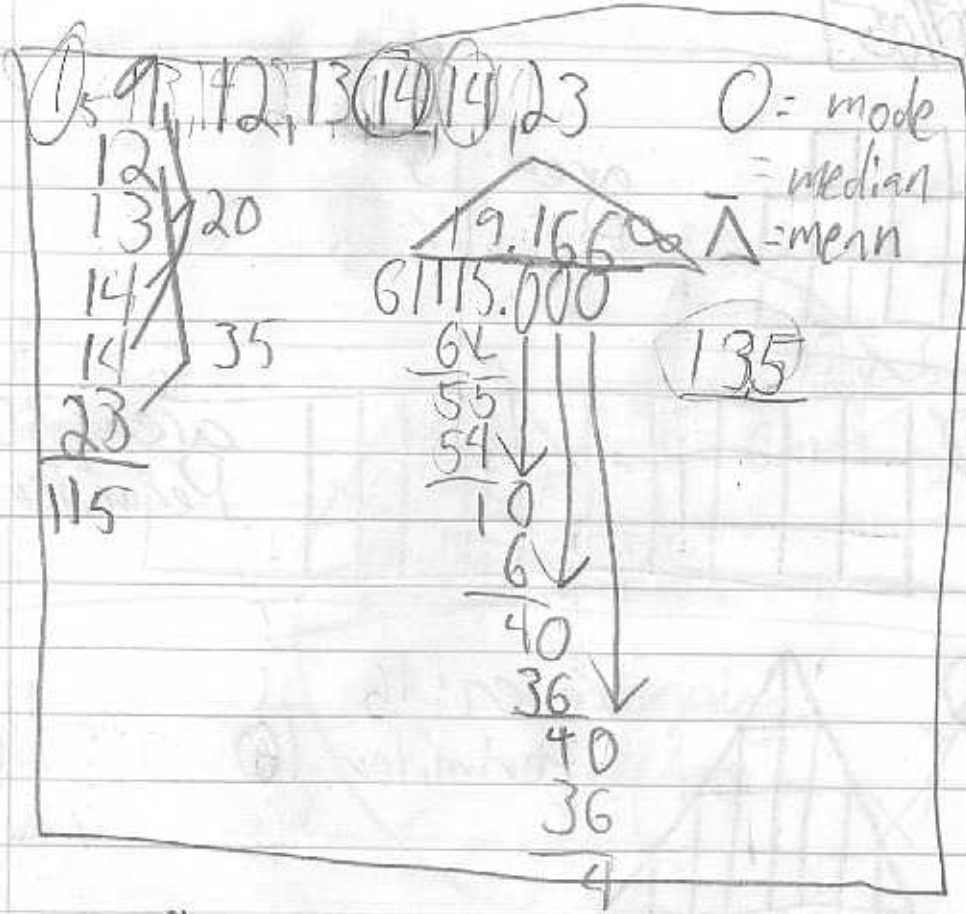 1, 9, 12, 13, 14, 14, 23
O = mode
_ = median
Δ = mean
12
13
14
14
23
115
20
35
19.166∞
6 115.000
6
55
54
10
6
40
36
40
36
4
13.5